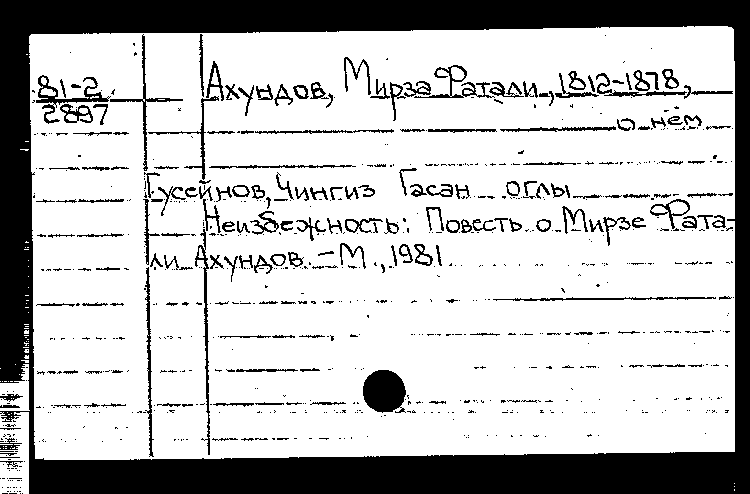 81-2
2897
Ахундов, Мирза Фатали, 1812-1878,
о нём
Гусейнов, Чингиз Гасан оглы
Неизбежность: Повесть о Мирзе Фата-
ли Ахундов. – М., 1981